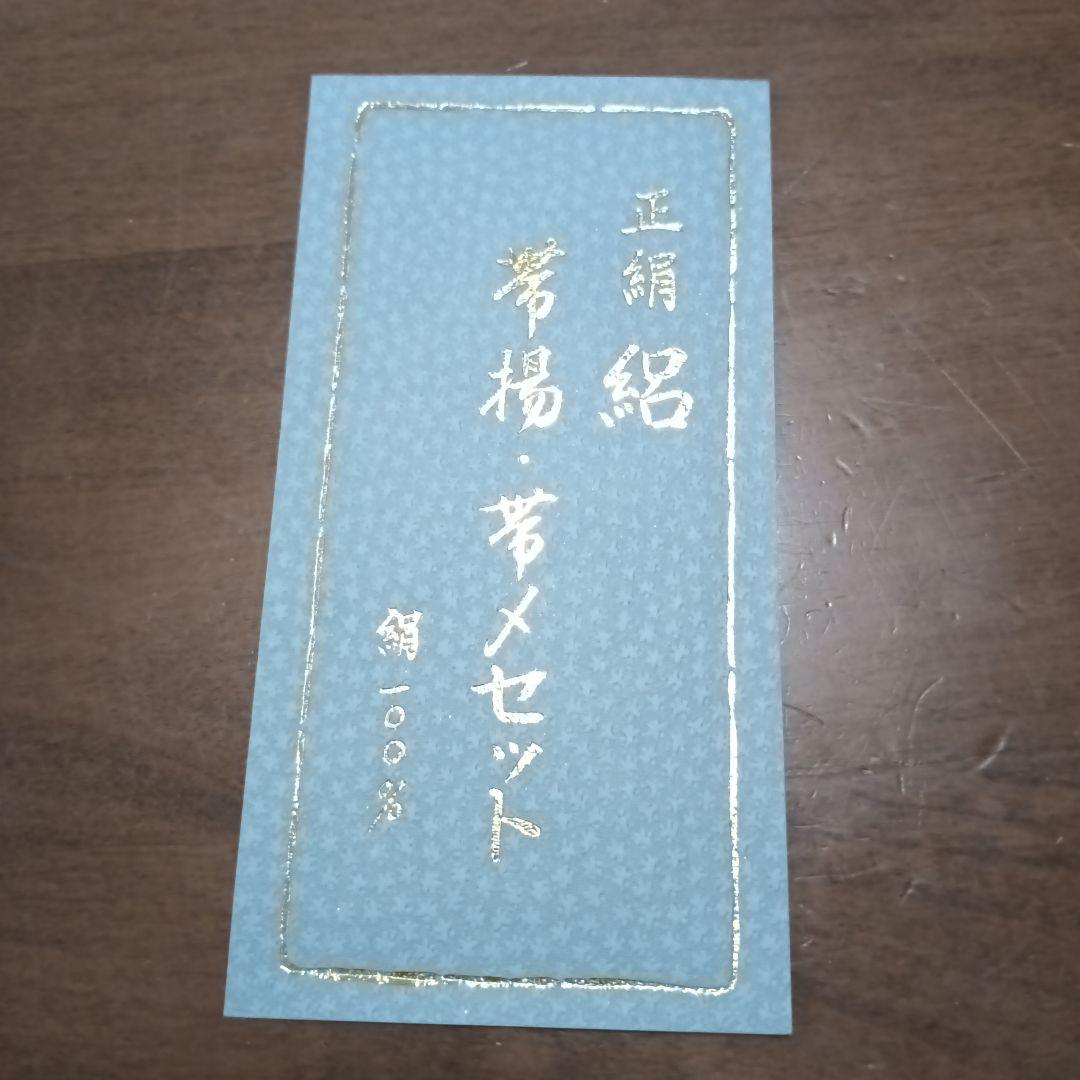 正絹 絽
帯揚・帯〆セット
絹一〇〇%